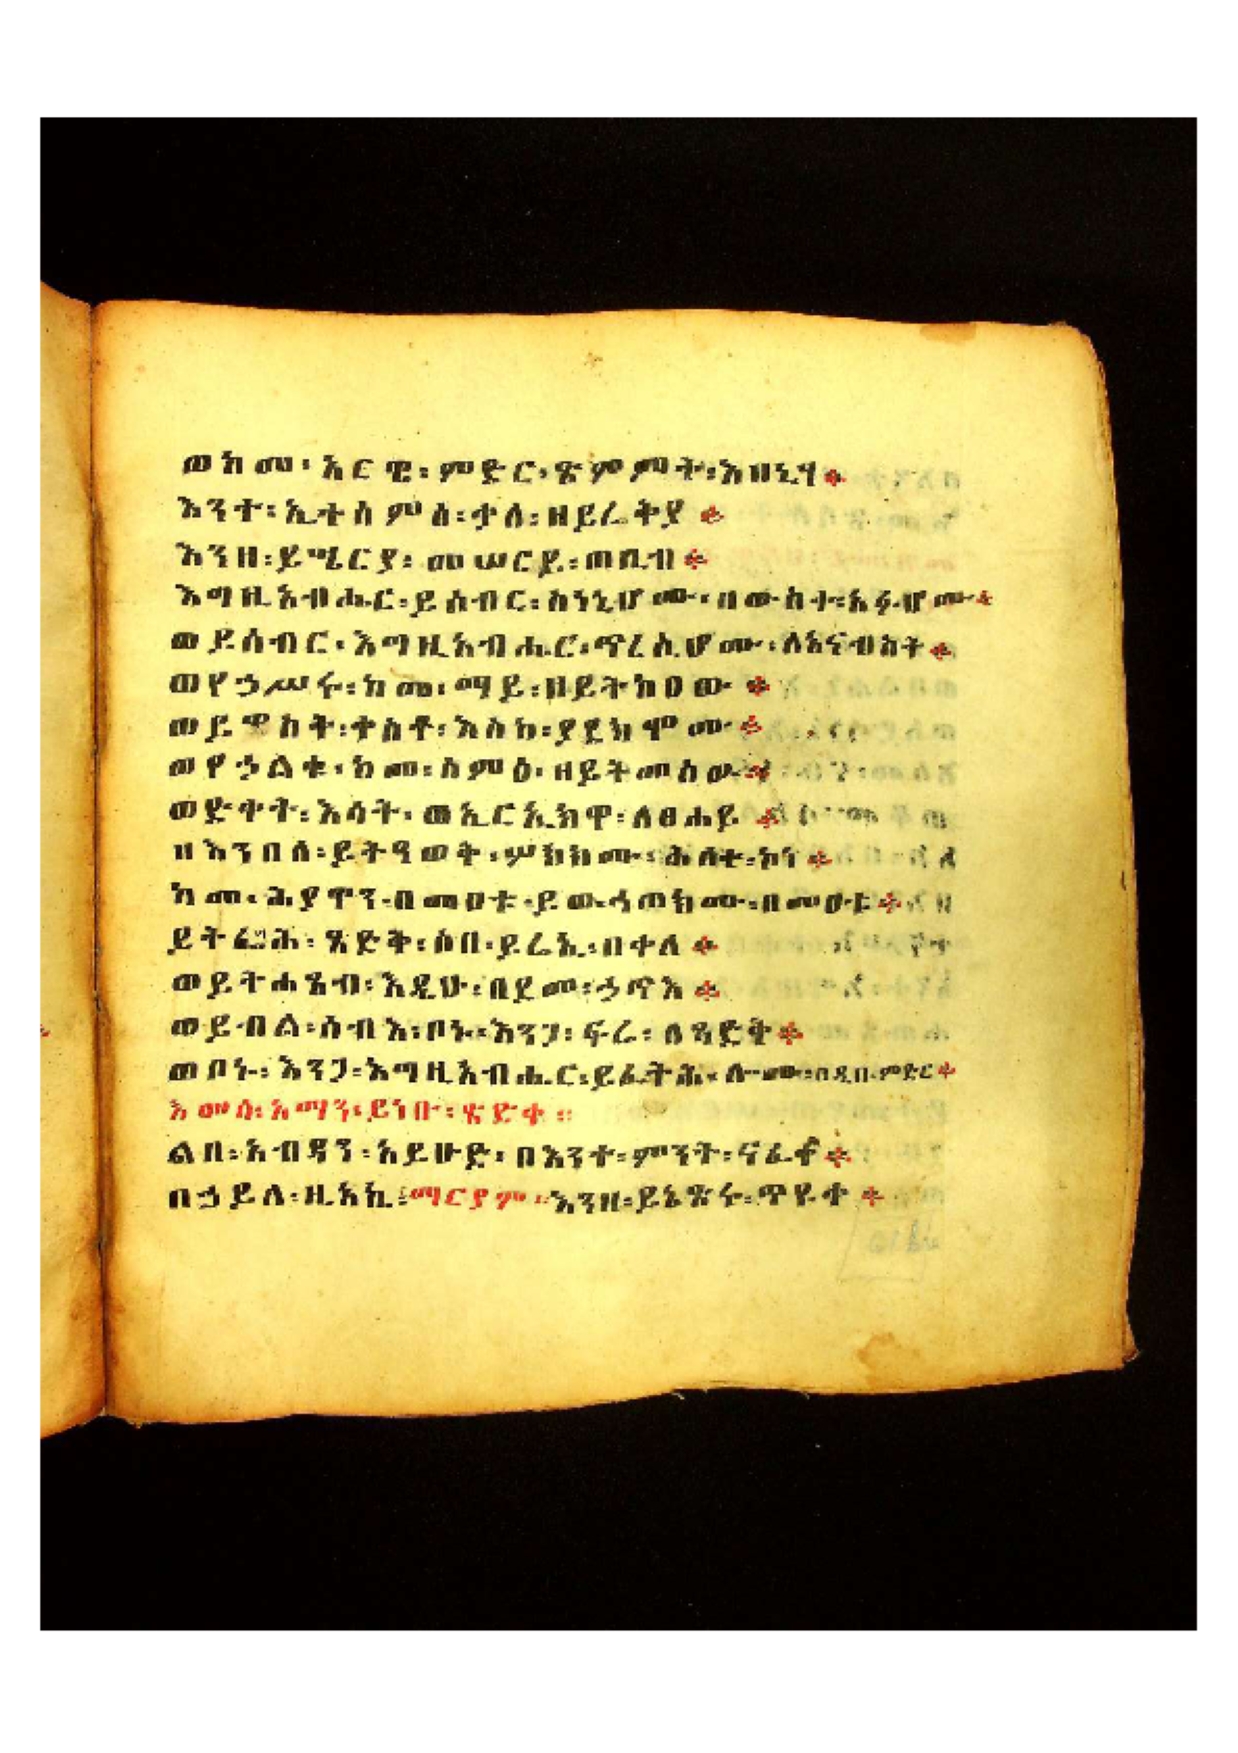 ወከመ፡ አርዌ፡ ምድር፡ ጽምምት፡ እዘኒሃ።
እንተ፡ ኢተሰምዐ፡ ቃለ፡ ዘይረቅያ።
እንዘ፡ ይሜርያ፡ መሠርይ፡ ጠቢብ።
እግዚአብሔር፡ ይሰብር፡ ስነኒሆሙ፡ በውስተ፡ አፉሆሙ።
ወይሰብር፡ እግዚአብሔር፡ ጥረሲሆሙ፡ ለአናብስት።
ወየኃሥሩ፡ ከመ፡ ማይ፡ ዘይትከዐው።
ወይዌስቅ፡ ቀስቶ፡ እስከ፡ ያደክሞሙ።
ወየኃልቁ፡ ከመ፡ ሰምዕ፡ ዘይትመሰው።
ወድቀት፡ እሳት፡ ወኢርኢክዋ፡ ለፀሐይ።
ዘእንበለ፡ ይትዓወቅ፡ ምክክሙ፡ ሕለተ፡ ኮነ።
ከመ፡ ሕያዋን፡ በመዐቱ፡ ይውኅጠክሙ፡ በመዐቱ።
ይትፌሣሕ፡ ጻድቅ፡ ሶበ፡ ይሬኢ፡ በቀለ።
ወይትሐፀብ፡ እዲሁ፡ በደመ፡ ኃጥእ።
ወይብል፡ ሰብእ፡ ቦኑ፡ እንጋ፡ ፍሬ፡ ለጻድቅ።
ወቦኑ፡ እንጋ፡ እግዚአብሔር፡ ይፈትሕ፡ ሎሙ፡ በዲበ፡ ምድር።
እመሰ፡ አማን፡ ይነቡ፡ ጽድቀ።
ልበ፡ አብዳን፡ አይሁድ፡ በእንተ፡ ምንት፡ ናፈቁ።
በኃይለ፡ ዚአኪ፡ ማርያም፡ እንዘ፡ ይኔጽሩ፡ ጥዩቀ።